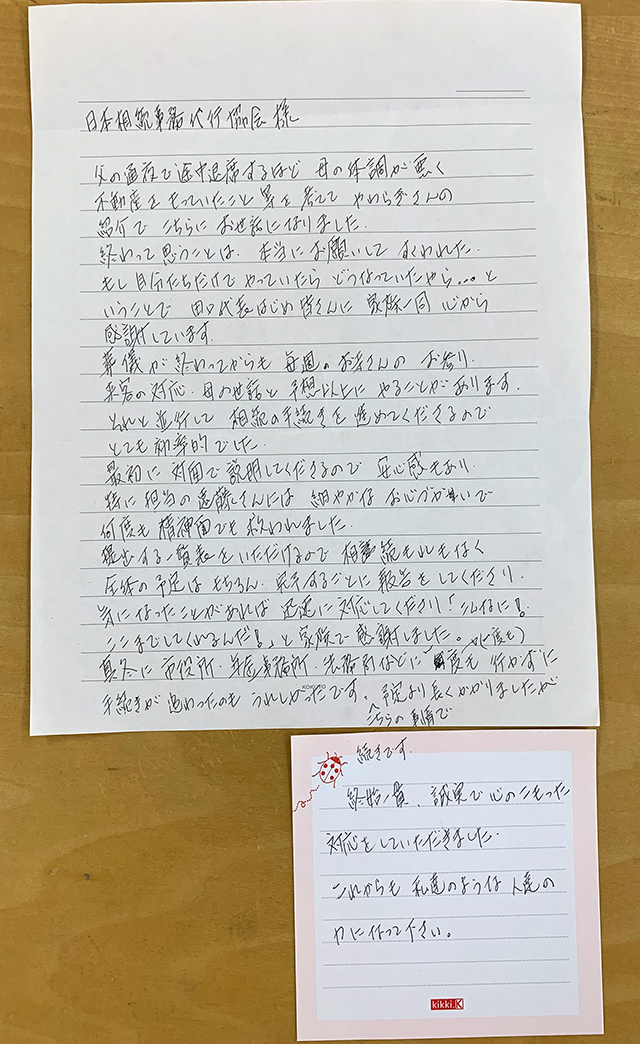 日本相続事務代行協会様
父の通夜で途中退席するほど 母の体調が悪く
不動産をもっていたこと等を考えて やわらぎさんの
紹介で こちらに お世話になりました.
終わって思うことは. 本当に お願いして すくわれた.
もし 自分たちだけで やっていたら どうなっていたやら…と
いうことで 田口代表はじめ 皆さんに 家族一同 心から
感謝しています.
葬儀が 終わってからも 毎週の お寺さんの お参り.
来客の対応. 母の世話と 予想以上に やることが あります.
それと 並行して 相続の手続きを 進めてくださるので
とても 効率的でした.
最初に 対面で 説明してくださるので 安心感もあり.
特に 担当の 遠藤さんには 細やかな お心づかいで
何度も 精神面でも 救われました.
提出する一覧表を いただけるので 相続もれもなく
全体の予定は もちろん. 完了するごとに 報告を してくださり.
気になったことがあれば 迅速に 対応してくださり「こんなに!
ここまでしてくれるんだ!」と 家族で 感謝しました。
真冬に 市役所・年金事務所・法務局などに 一度も 行かずに
手続きが 進わったのも うれしかったです. 予定より 長くかかりましたが
こちらの事情で
続きです.
終始一貫、誠実で 心のこもった
対応を していただきました.
これからも 私達のような 人達の
力になって下さい。
kikki.K